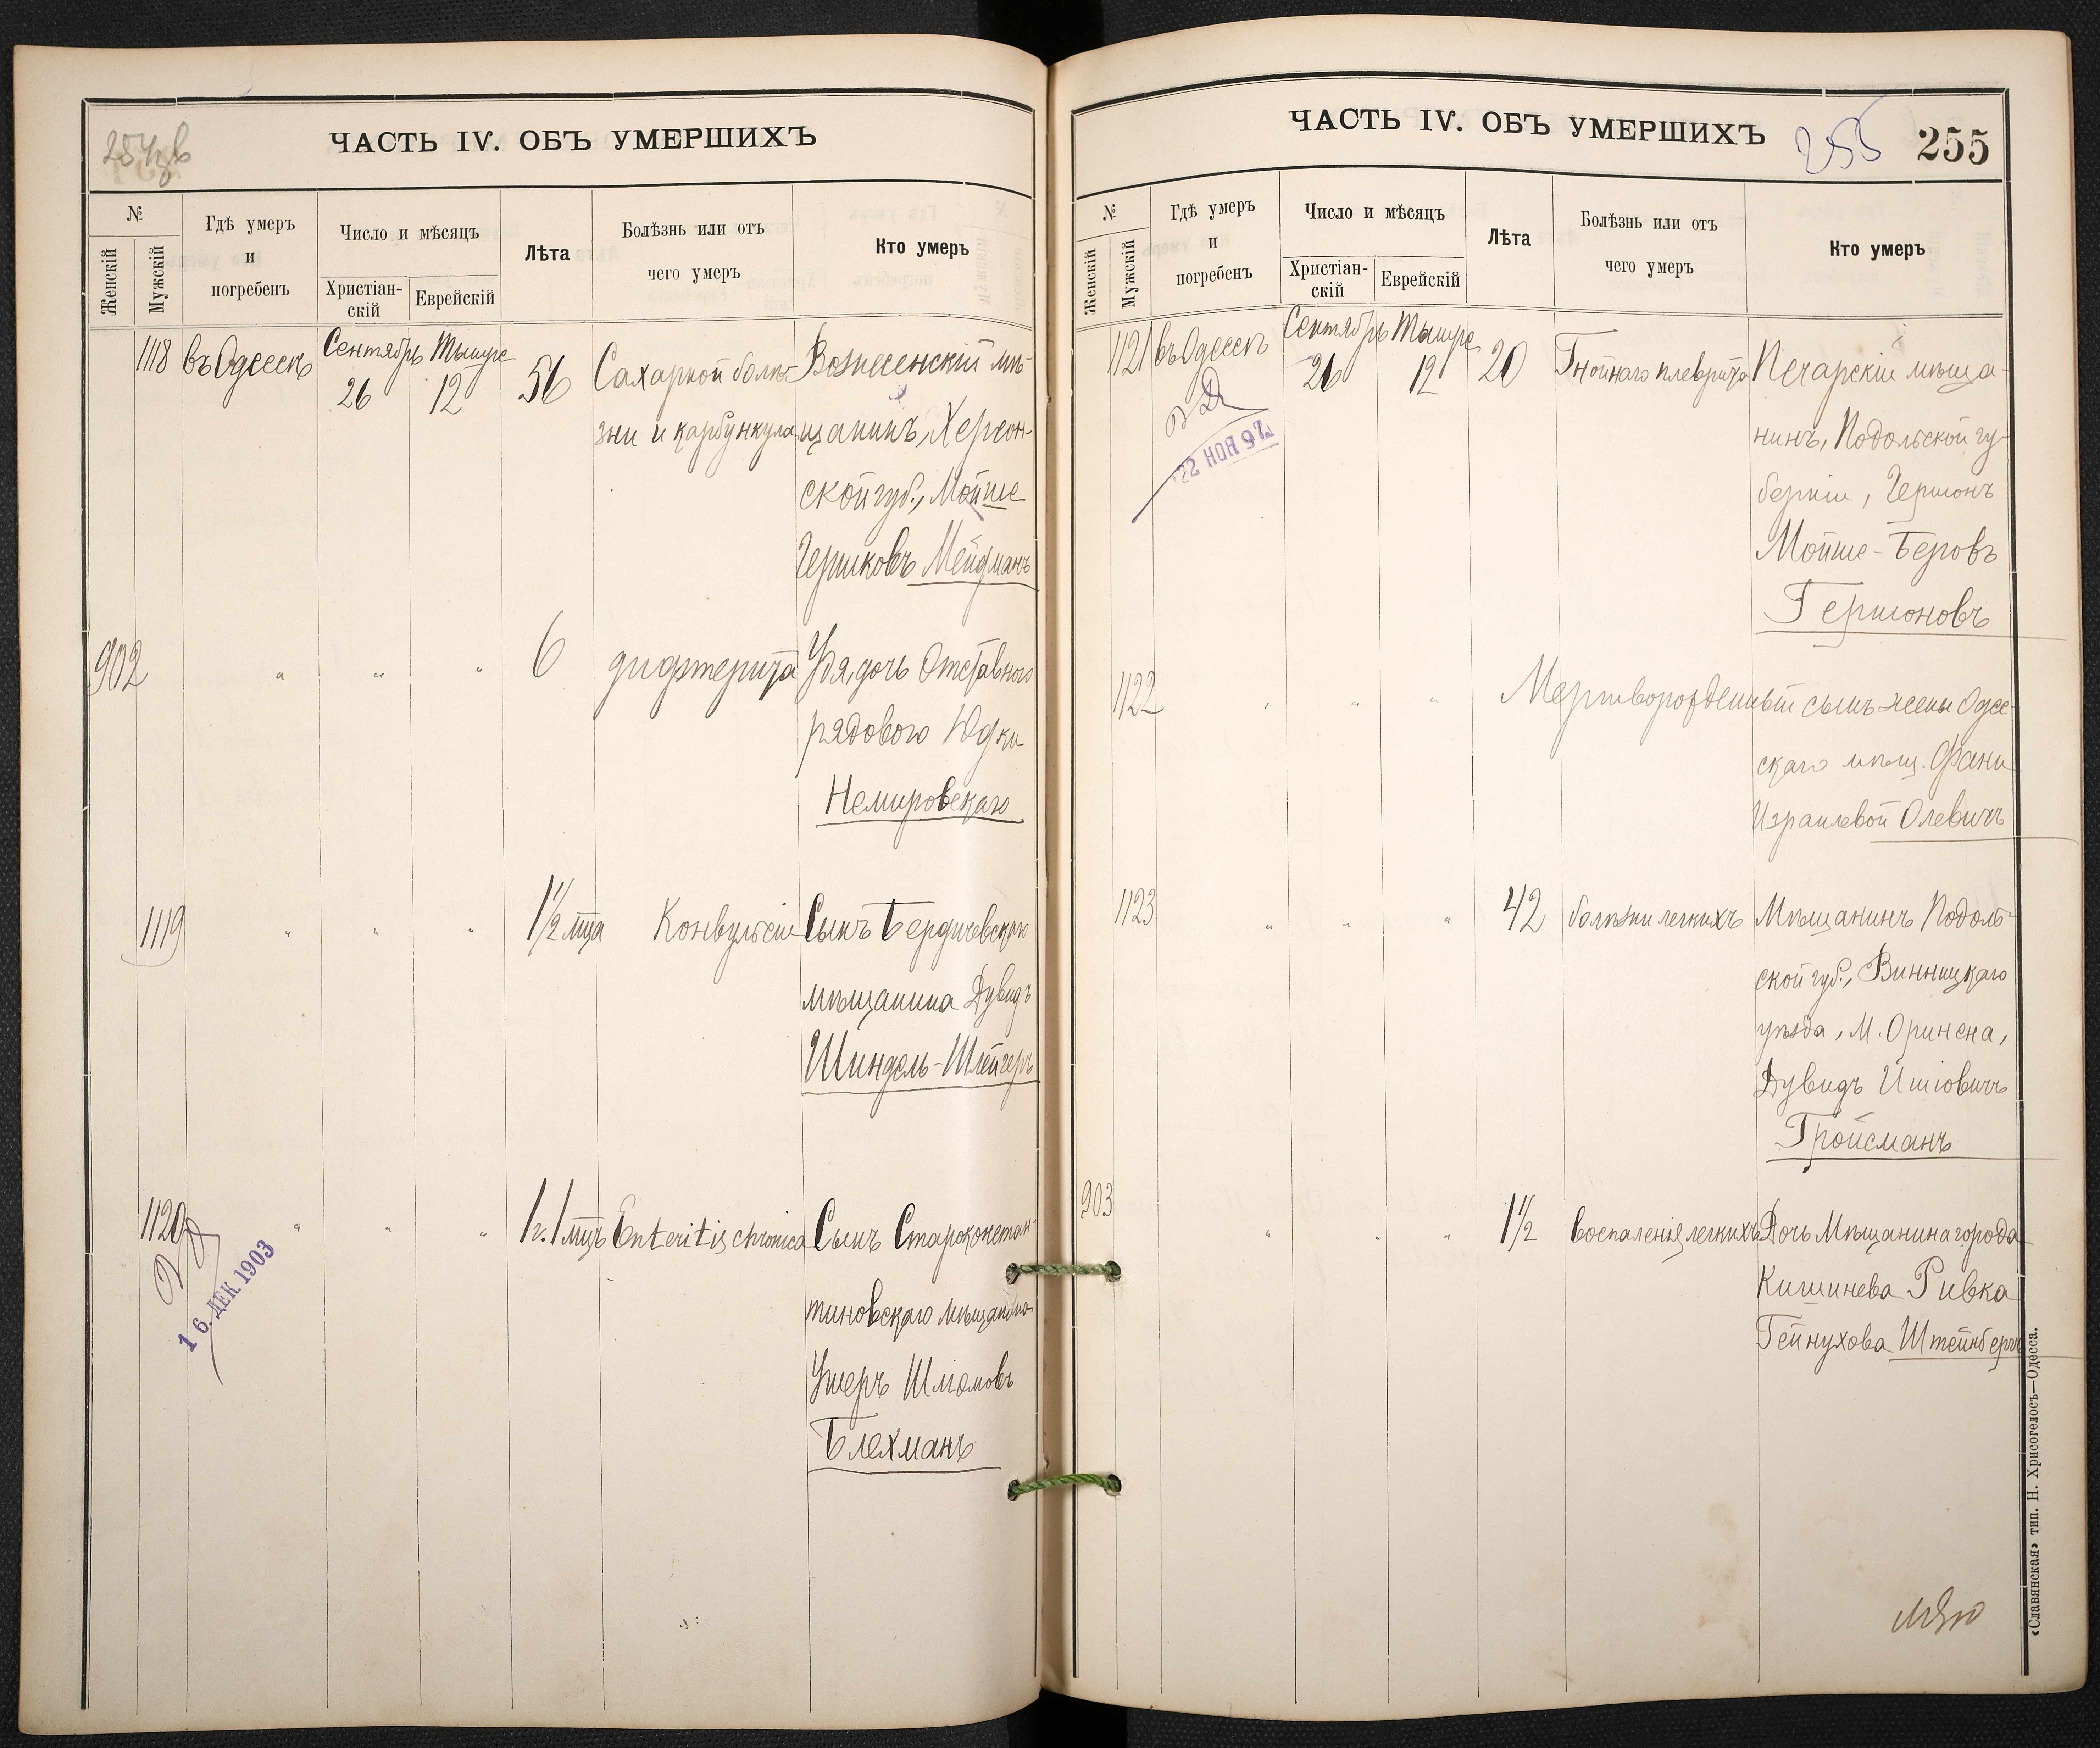 ЧАСТЬ IV. ОБЪ УМЕРШИХЪ
№
Женскій
Мужскій
Гдѣ умеръ
и
погребенъ
Число и мѣсяцъ
Христіан-
скій
Еврейскій
Лѣта
Болѣзнь или отъ
чего умеръ
Кто умеръ
1118 въ Одессѣ Сентябрь 26 Тишре 12 56 Сахарной болѣ- Вознесенскій мѣ-
зни и карбункула щанинъ, Херсон-
ской губ., Мойше
Гершковъ Мейдманъ
902 " " " 6 дифтерита Удя, дочь Отставного
рядового Юдки
Немировскаго
1119 " " " 1½ мца Конвульсіи Сынъ Бердичевскаго
мѣщанина Дувидъ
Шиндель-Шлейгеръ
1120 " " " 1 г. 1 мцъ Enteritis chronica Сынъ Староконстан-
тиновскаго мѣщанина
Ушеръ Шліомовъ
Блехманъ
16. ДЕК 1903
ЧАСТЬ IV. ОБЪ УМЕРШИХЪ
255 255
№
Женскій
Мужскій
Гдѣ умеръ
и
погребенъ
Число и мѣсяцъ
Христіан-
скій
Еврейскій
Лѣта
Болѣзнь или отъ
чего умеръ
Кто умеръ
1121 въ Одессѣ Сентябрь 26 Тишре 12 20 Гнойнаго плеврита Печарскій мѣща-
нинъ, Подольской гу-
берніи, Гершонъ
Мойше-Беровъ
Гершоновъ
22 НОЯ
1122 " " " Мертворожденный сынъ жены Одес-
скаго мѣщ. Фани
Израилевой Олевичъ
1123 " " " 42 болѣзни легкихъ Мѣщанинъ Подоль-
ской губ., Винницкаго
уѣзда, М. Оринена,
Дувидъ Ишіовичъ
Гройсманъ
903 " " " 1½ воспаленія легкихъ Дочь Мѣщанина города
Кишинева Ривка
Гейнухова Штейнбергъ
«Славянская» тип. Н. Хрисогелосъ—Одесса.